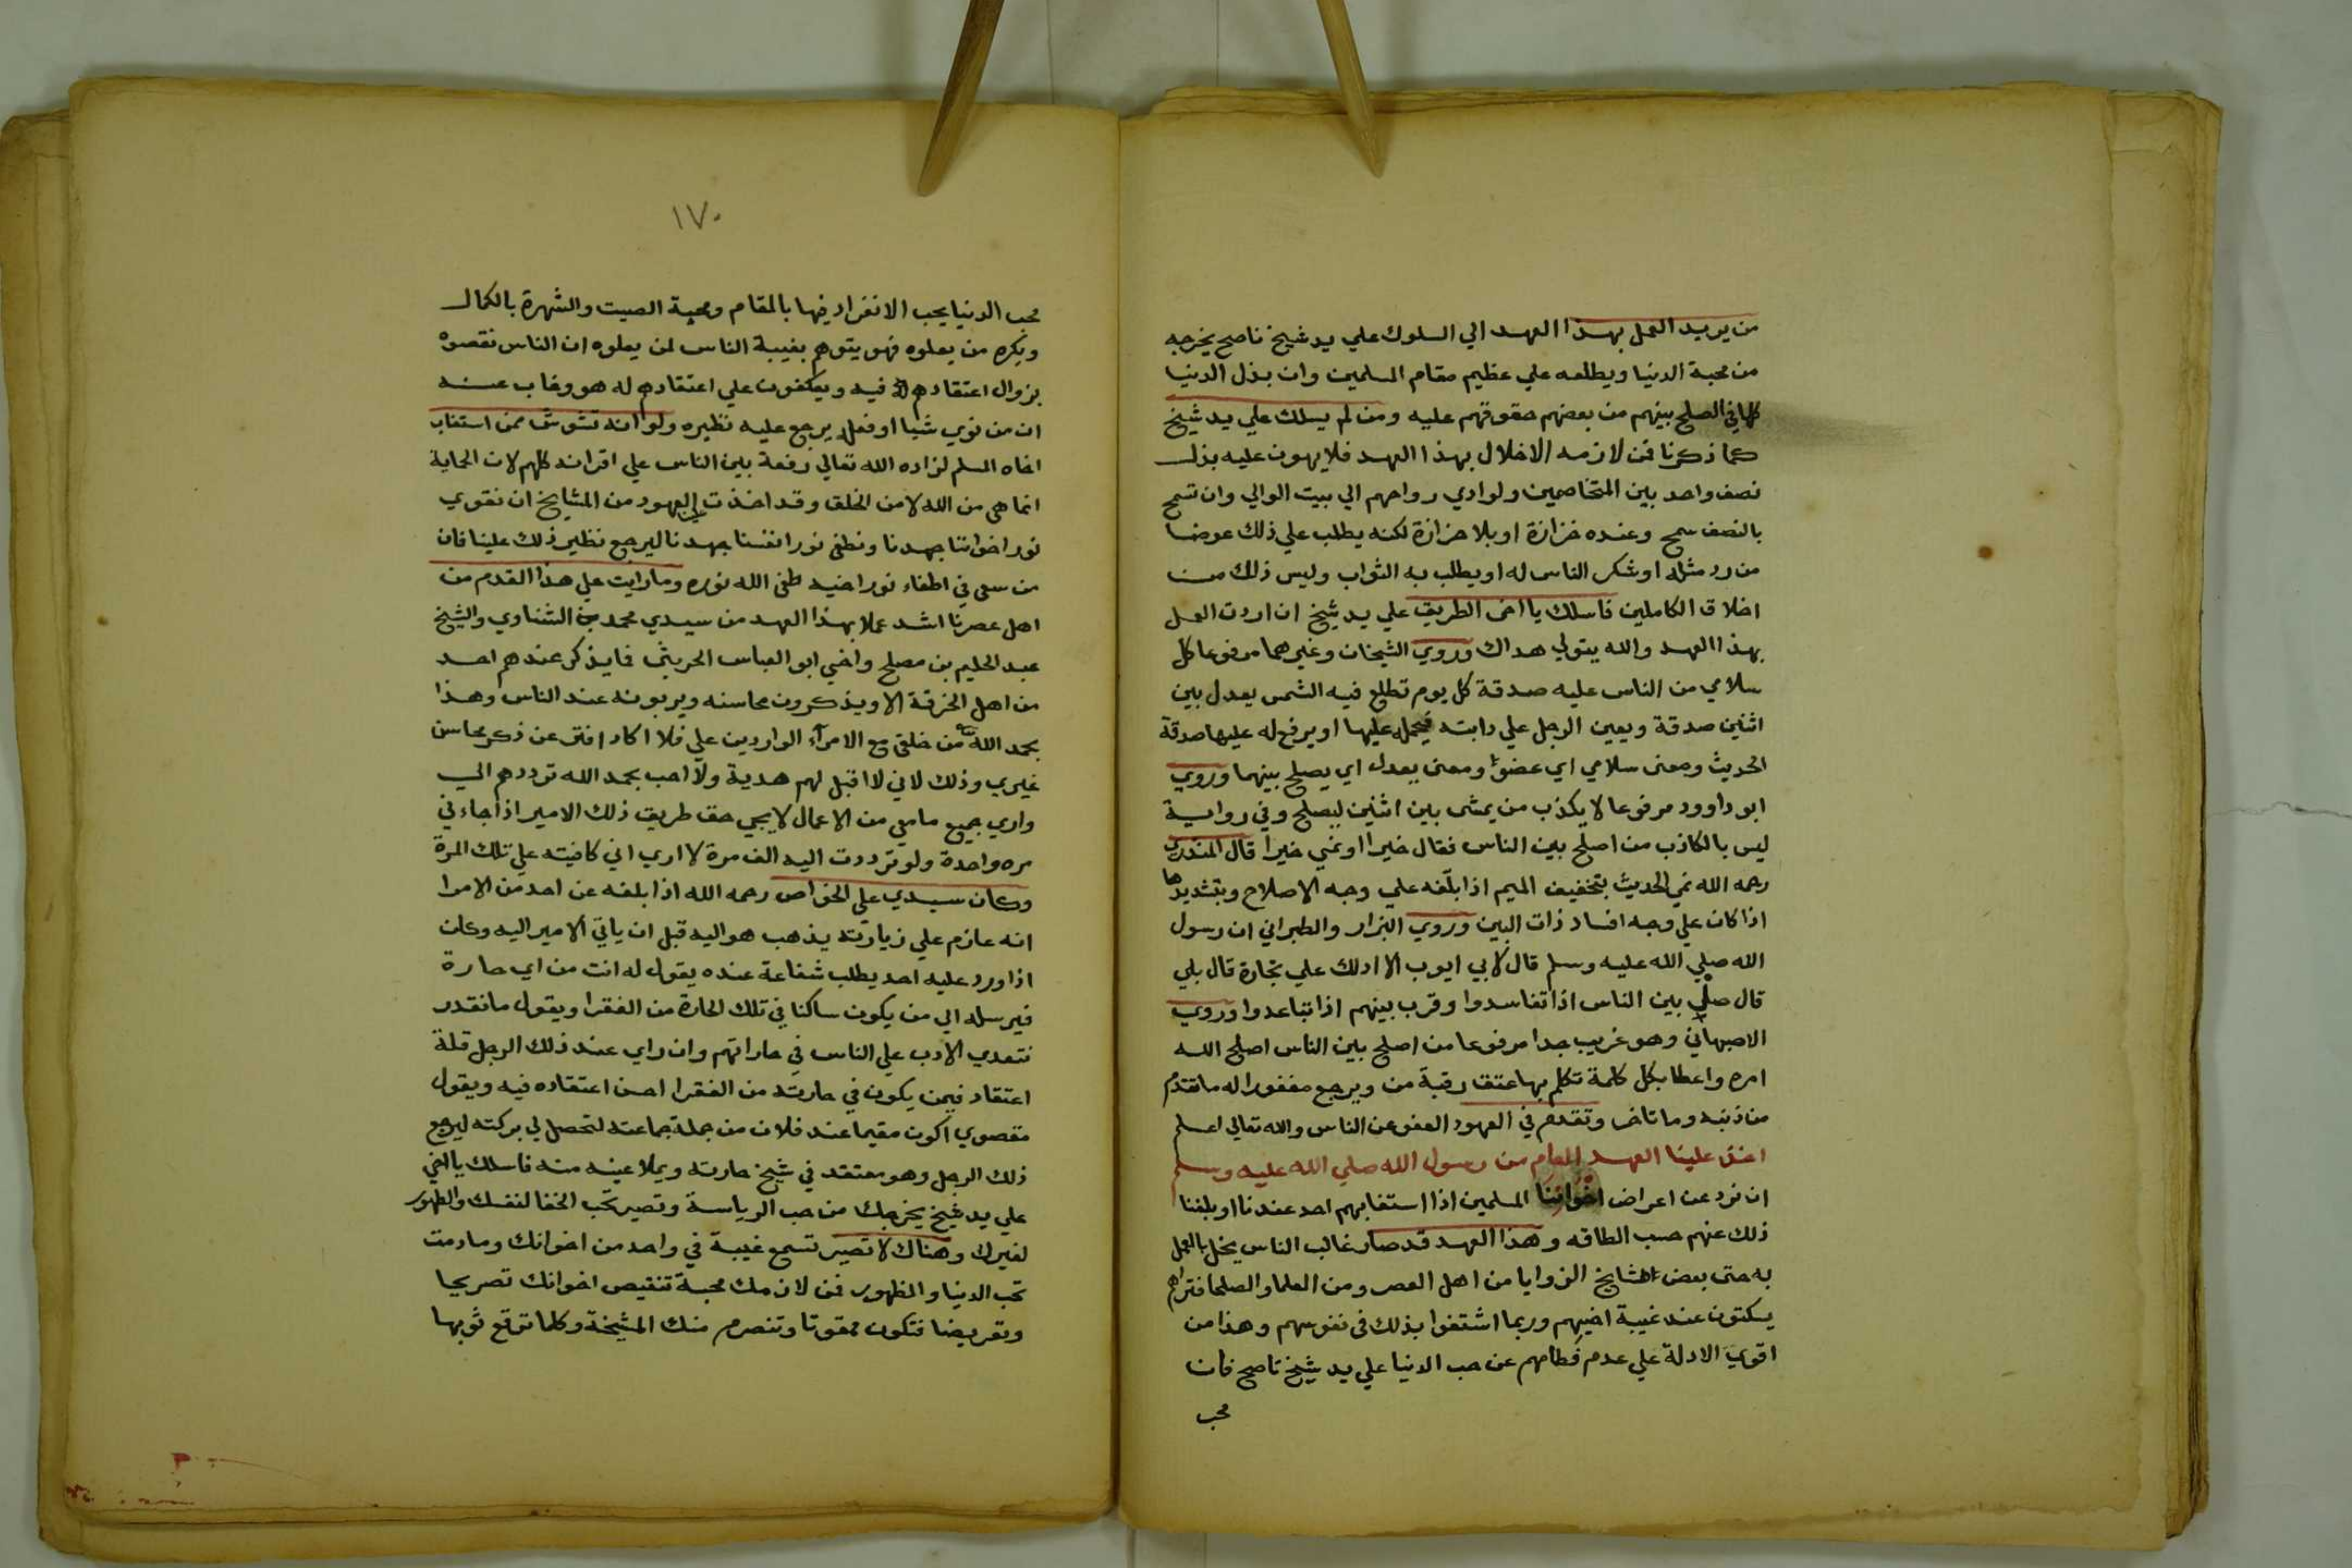 من يريد العمل بهذا العهد الي السلوك علي يد شيخ ناصح يخرجه
من محبة الدنيا ويطلعه علي عظيم مقام المسلمين وان بذل الدنيا
كلها في الصلح بينهم من بعضهم حقوقهم عليه ومن لم يسلك علي يد شيخ
كما ذكرنا فمن لازمه الاخلال بهذا العهد فلا يهون عليه بذل
نصف واحد بين المتخاصمين ولو ادي رواحهم الي بيت الوالي وان تسمح
بالنصف سمح وعنده حزازة او بلا حزازة لكنه يطلب علي ذلك عوضا
من رد مثله او شكر الناس له او يطلب به الثواب وليس ذلك من
اخلاق الكاملين فاسلك يا اخي الطريق علي يد شيخ ان اردت العمل
بهذا العهد والله يتولي هداك وروي الشيخان وغيرهما مرفوعا كل
سلامي من الناس عليه صدقة كل يوم تطلع فيه الشمس يعدل بين
اثنين صدقة ويعين الرجل علي دابته فيحمله عليها او يرفع له عليها صدقة
الحديث ومعنى سلامي اي عضو ومعنى يعدل اي يصلح بينهما وروي
ابو داوود مرفوعا لا يكذب من يمشي بين اثنين ليصلح وفي رواية
ليس بالكاذب من اصلح بين الناس فقال خيرا او نمي خيرا قال المنذري
رحمه الله نمي الحديث بتخفيف الميم اذا بلغه علي وجه الاصلاح وبتشديدها
اذا كان علي وجه افساد ذات البين وروي البزار والطبراني ان رسول
الله صلي الله عليه وسلم قال لابي ايوب الا ادلك علي تجارة قال بلي
قال صلي بين الناس اذا تفاسدوا وقرب بينهم اذا تباعدوا وروي
الاصبهاني وهو غريب جدا مرفوعا من اصلح بين الناس اصلح الله
امره واعطا بكل كلمة تكلم بها عتق رقبة من ويرجع مغفورا له ما تقدم
من ذنبه وما تاخر وتقدم في العهود العفو عن الناس والله تعالي اعلم
اخذ علينا العهد العام من رسول الله صلي الله عليه وسلم
ان نرد عن اعراض اخواننا المسلمين اذا استغابهم احد عندنا او بلغنا
ذلك عنهم حسب الطاقه وهذا العهد قد صار غالب الناس يخل بالعمل
به حتى بعض المشايخ الزوايا من اهل العصر ومن العلما والصلحا فتراهم
يسكتون عند غيبة اخيهم وربما اشتفوا بذلك في نفوسهم وهذا من
اقوي الادلة علي عدم فطامهم عن حب الدنيا علي يد شيخ ناصح فان
محب
١٧٠
محب الدنيا يحب الانفراد فيها بالمقام ومحبة الصيت والشهرة بالكمال
ويكره من يعلوه فهو يتوهم بغيبة الناس لمن يعلوه ان الناس نقصوه
بزوال اعتقادهم فيه ويعكفون علي اعتقادهم له هو وغاب عنه
ان من نوي شيا او فعله يرجع عليه نظيره ولو انه تشوش ممن استغاب
اخاه المسلم لزاده الله تعالي رفعة بين الناس علي اقرانه كلهم لان الحماية
انما هي من الله لا من الخلق وقد اخذت العهود من المشايخ ان نقوي
نور اخواننا جهدنا ونطفي نور انفسنا جهدنا ليرجع نظير ذلك علينا فان
من سعي في اطفاء نور اخيه طفي الله نوره وما رايت علي هذا القدم من
اهل عصرنا اشد عملا بهذا العهد من سيدي محمد بن الشناوي والشيخ
عبد الحليم بن مصلح واخي ابو العباس الحريثي فما يذكر عندهم احد
من اهل الخرقة الا ويذكرون محاسنه ويربونه عند الناس وهذا
بحمد الله من خلقي مع الامراء الواردين علي فلا اكاد افتر عن ذكر محاسن
غيري وذلك لاني لا اقبل لهم هدية ولا احب بحمد الله ترددهم الي
واري جميع ما معي من الاعمال لا يجي حق طريق ذلك الامير اذا جاءني
مره واحدة ولو ترددت اليه الف مرة لا اري اني كافيته علي تلك المرة
وكان سيدي علي الخواص رحمه الله اذا بلغه عن احد من الامرا
انه عازم علي زيارته يذهب هو اليه قبل ان ياتي الامير اليه وكان
اذا ورد عليه احد يطلب شفاعة عنده يقول له انت من اي حارة
فيرسله الي من يكون ساكنا في تلك الحارة من الفقرا ويقول ما نقدر
نتعدي الادب علي الناس في حاراتهم وان راي عند ذلك الرجل قلة
اعتقاد فيمن يكون في حارته من الفقرا احسن اعتقاده فيه ويقول
مقصوي اكون مقيما عند فلان من جملة جماعته لتحصل لي بركته ليرجع
ذلك الرجل وهو معتقد في شيخ حارته ويملا عينه منه فاسلك يا اخي
علي يد شيخ يخرجك من حب الرياسة وتصير تحب الخفا لنفسك والظهور
لغيرك وهناك لا تصير تسمع غيبة في واحد من اخوانك وما دمت
تحب الدنيا والظهور فمن لازمك محبة تنقيص اخوانك تصريحا
وتعريضا فتكون ممقوتا وتنصرم منك المشيخة وكلما ترقع ثوبها